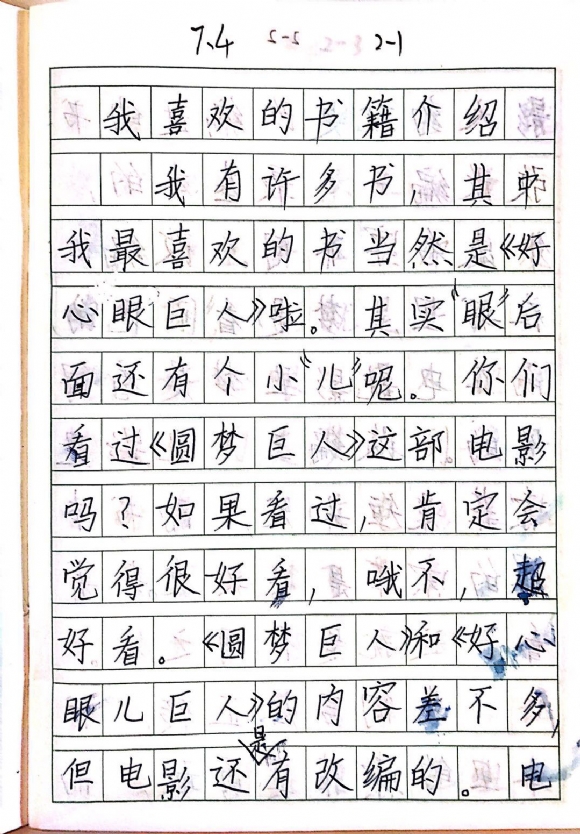 7.4 5-5 2-3 2-1
我喜欢的书籍介绍
我有许多书，其中
我最喜欢的书当然是《好
心眼巨人》啦。其实“眼”后
面还有个小“儿”呢。你们
看过《圆梦巨人》这部电影
吗？如果看过，肯定会
觉得很好看，哦不，超
好看。《圆梦巨人》和《好心
眼儿巨人》的内容差不多，
但电影还是有改编的。电